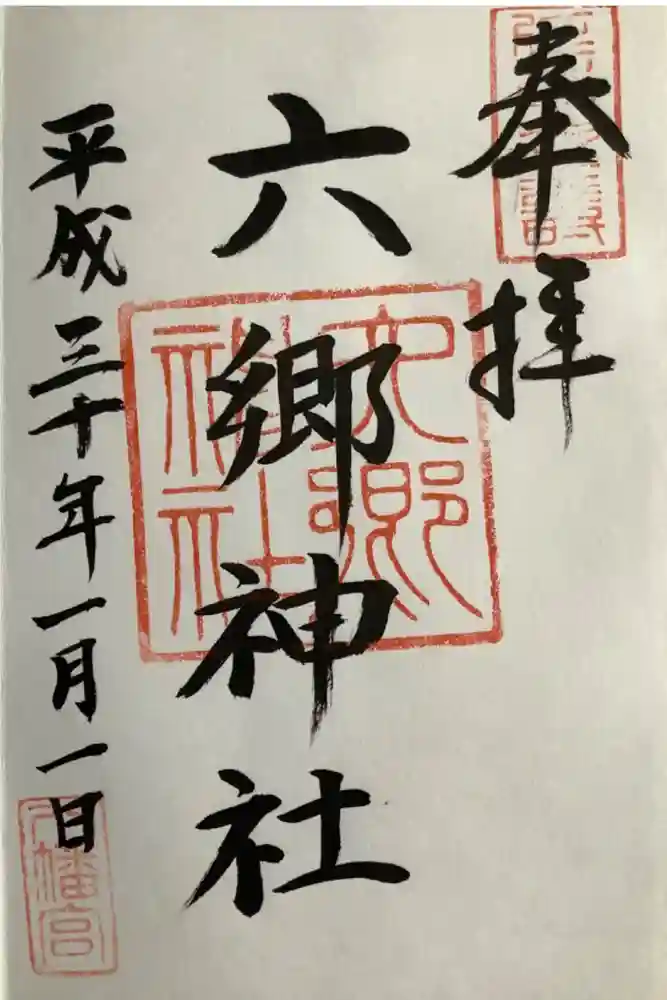 奉拝
六郷神社
平成三十年一月一日
六郷
神社
八幡宮